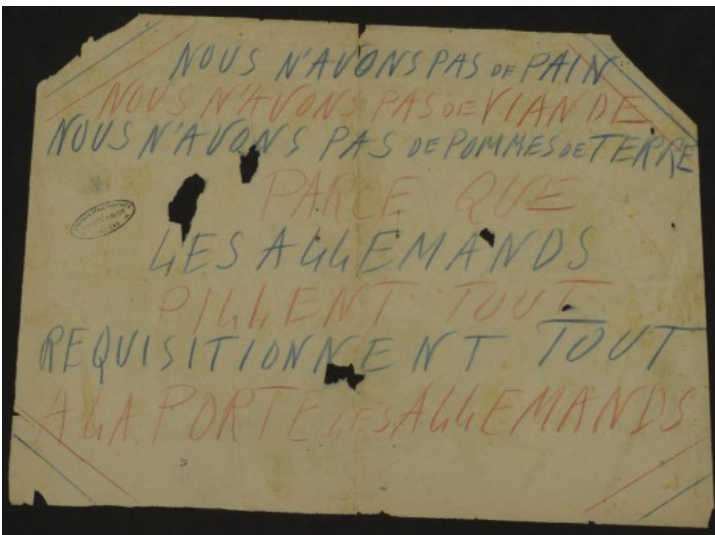 NOUS N'AVONS PAS DE PAIN
NOUS N'AVONS PAS DE VIANDE
NOUS N'AVONS PAS DE POMMES DE TERRE
PARCE QUE
LES ALLEMANDS
PILLENT TOUT
REQUISITIONNENT TOUT
A LA PORTE LES ALLEMANDS